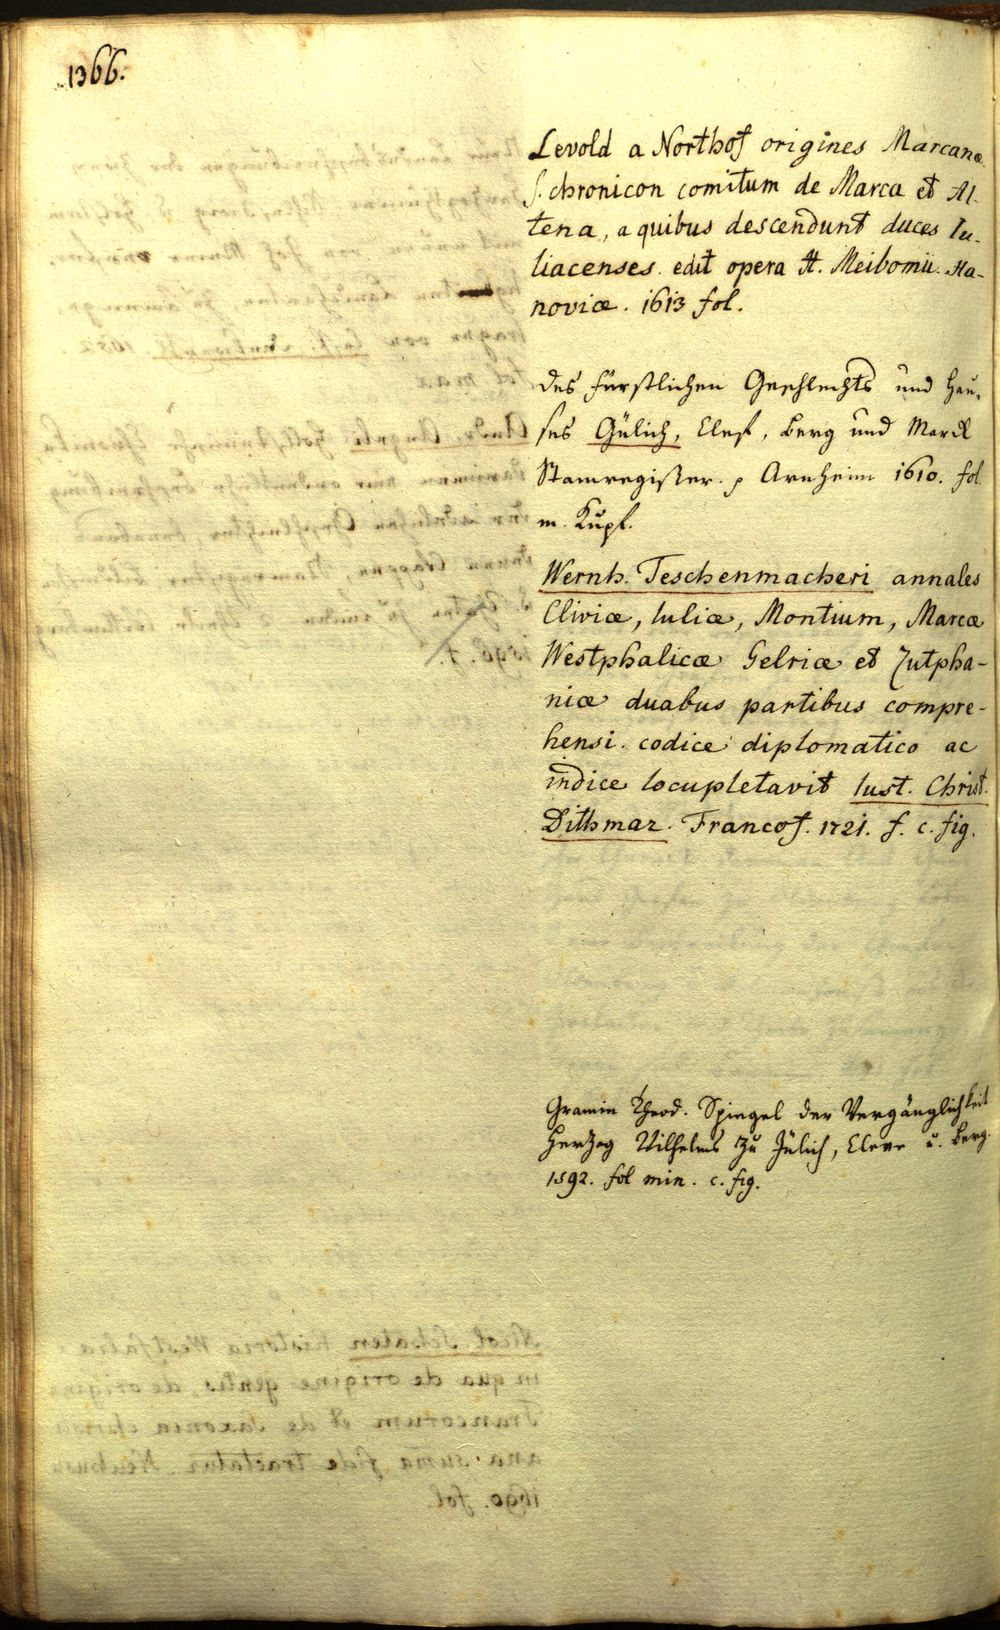 1366.
Levold a Northof origines Marcanæ
s. chronicon comitum de Marca et Al-
tena, a quibus descendunt duces Iu-
liacenses. edit opera H. Meibomii. Ha-
noviæ. 1613 fol.
des Fürstlichen Geschlechts und Hau-
ses Gülich, Clef, Berg und Marck
Stamregister. p Arnheim 1610. fol.
m. Kupf.
Wernh. Teschenmacheri annales
Cliviæ, Iuliæ, Montium, Marcæ
Westphalicæ Gelriæ et Zutpha-
niæ duabus partibus compre-
hensi. codice diplomatico ac
indice locupletavit Iust. Christ.
Dithmar. Francof. 1721. f. c. fig.
Gramin Theod. Spiegel der Vergänglichkeit
Herzog Wilhelms zu Jülich, Cleve u. Berg.
1592. fol min. c. fig.